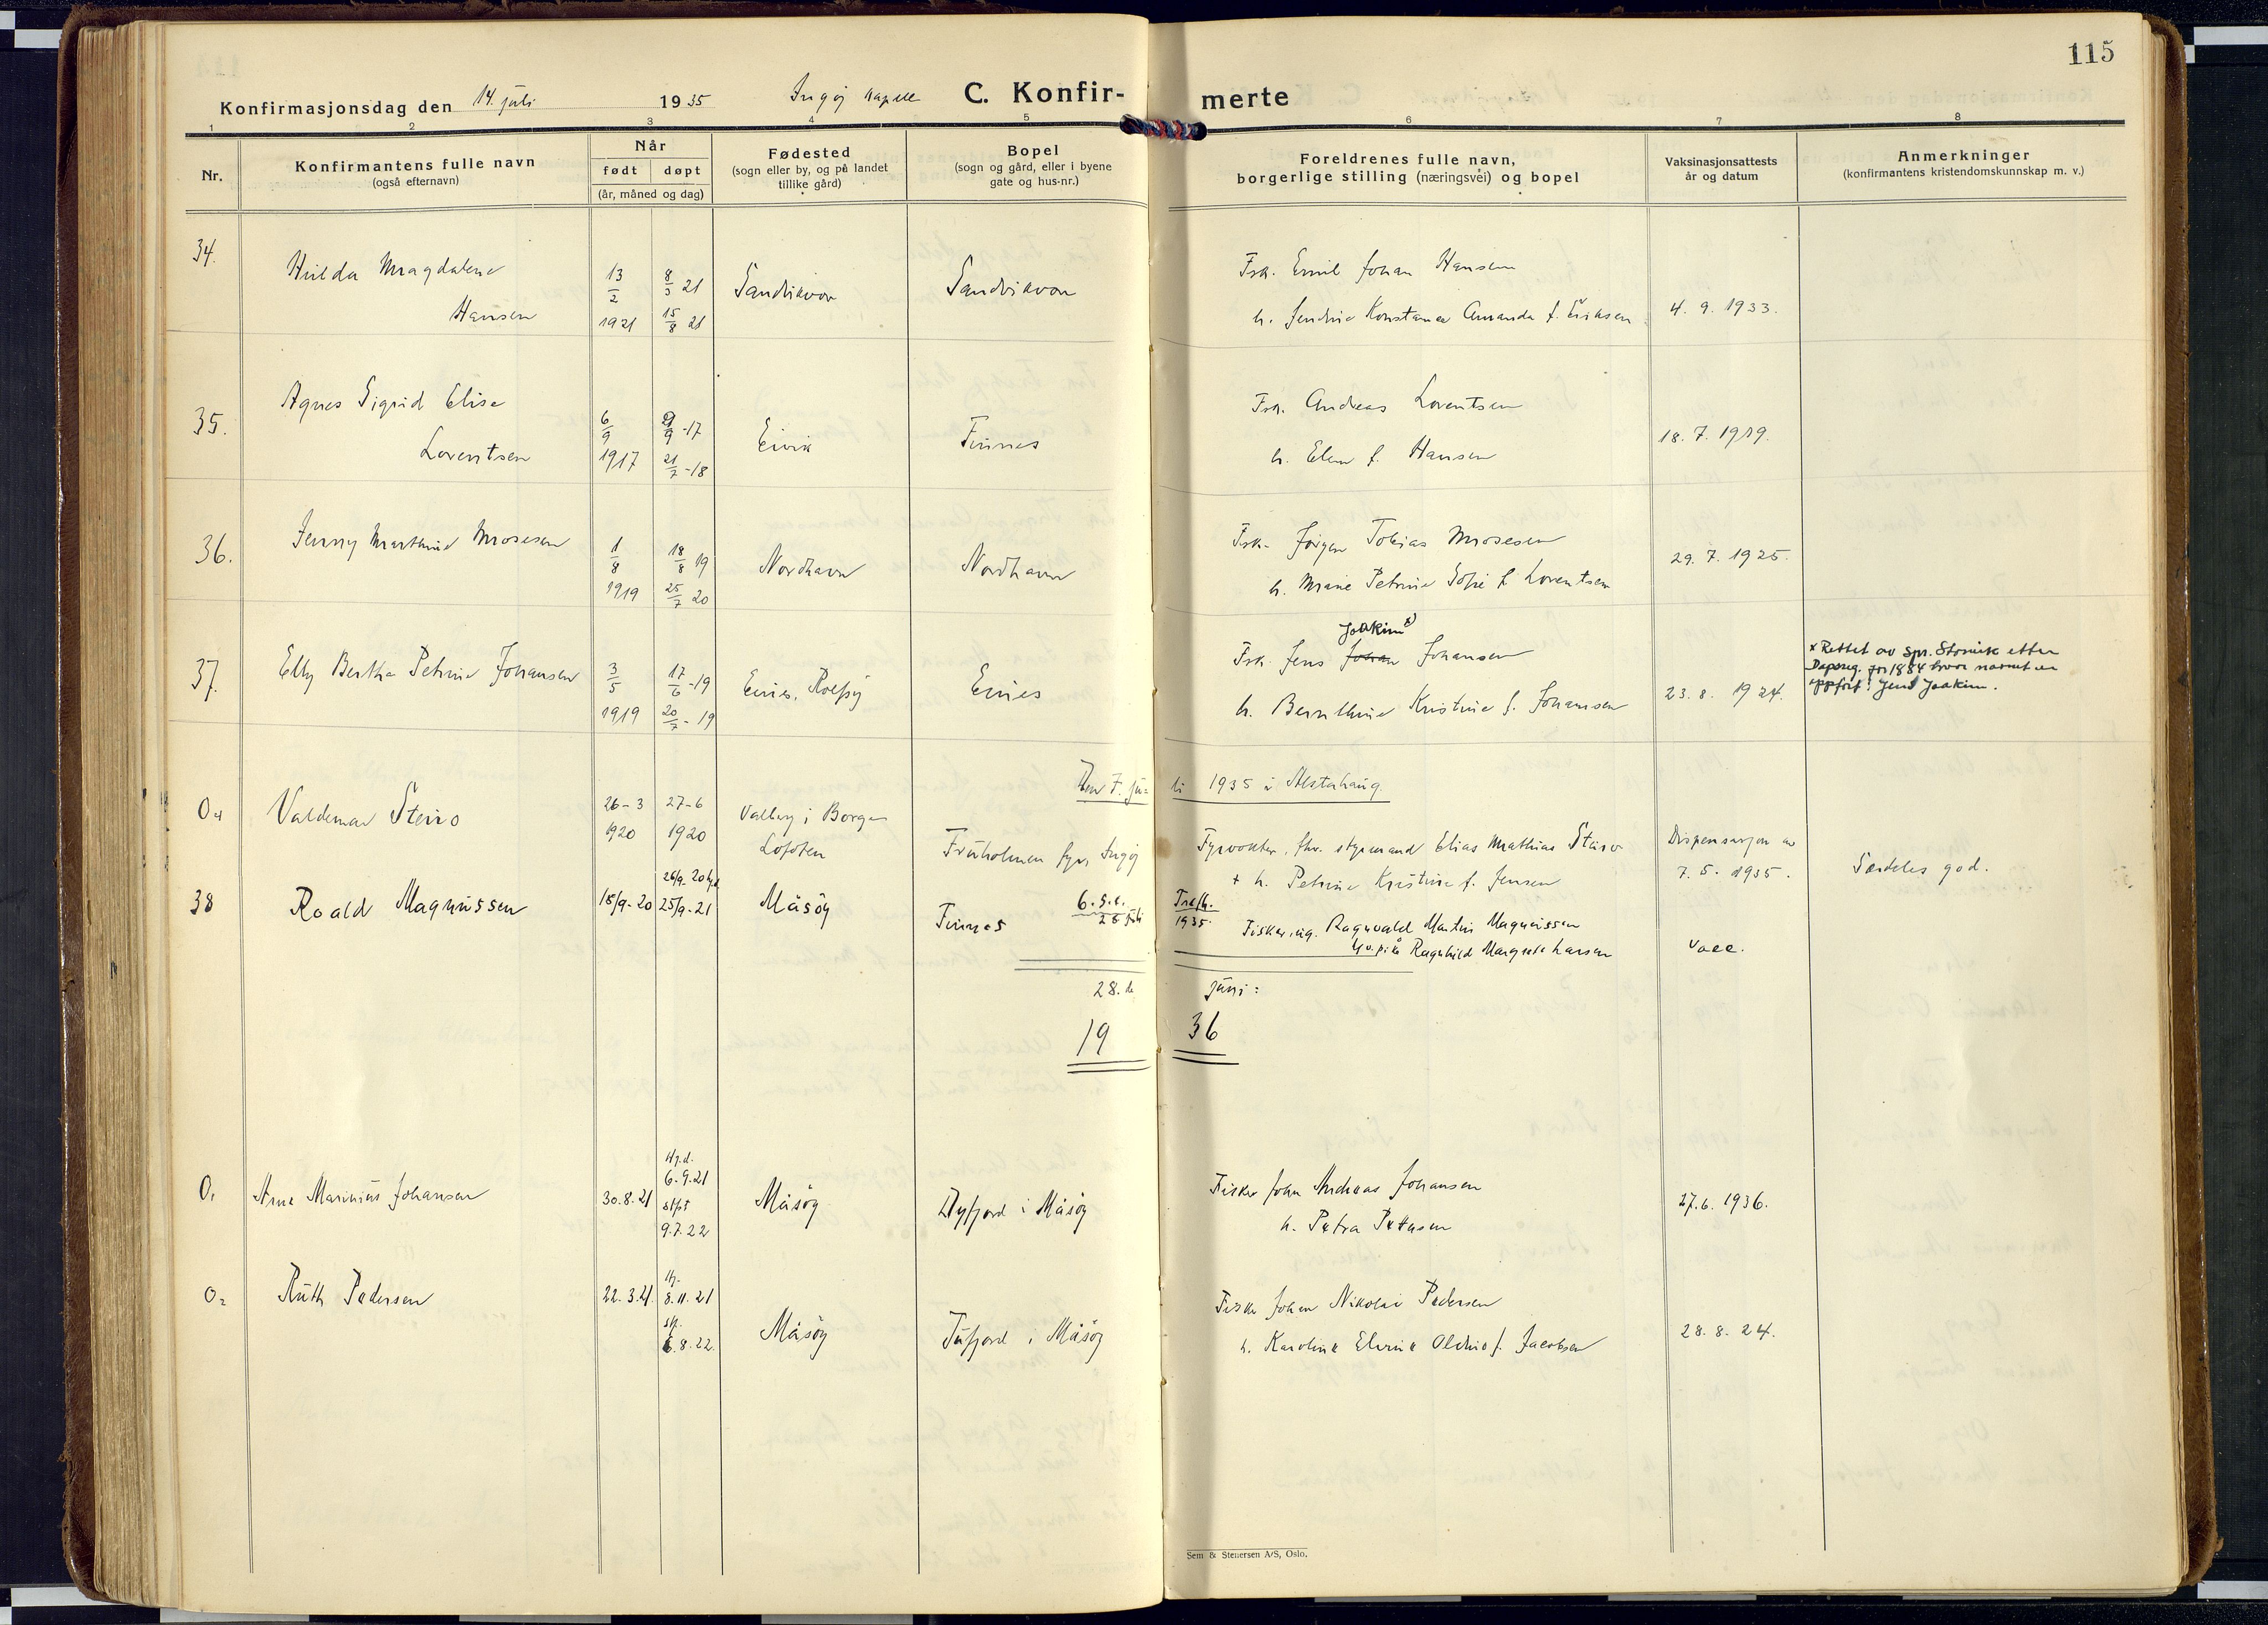 115
Konfirmasjonsdag den 14. juli 1935 Ingøy kapell C. Konfir-merte
1 2 3 4 5 6 7 8
Nr.
Konfirmantens fulle navn
(også efternavn)
Når
født døpt
(år, måned og dag)
Fødested
(sogn eller by, og på landet
tillike gård)
Bopel
(sogn og gård, eller i byene
gate og hus-nr.)
Foreldrenes fulle navn,
borgerlige stilling (næringsvei) og bopel
Vaksinasjonsattests
år og datum
Anmerkninger
(konfirmantens kristendomskunnskap m. v.)
34. Hulda Magdalene
Hansen
13/2 1921
8/3 21
15/8 21
Sandvikvær Sandvikvær
Fsk. Emil Johan Hansen
h. Jendine Konstance Amanda f. Eriksen
4. 9. 1933.
35. Agnes Sigrid Elise
Lorentsen
6/9 1917
9/9 -17
21/7 -18
Eivik Finnes
Fsk. Andreas Lorentsen
h. Elen f. Hansen
18. 7. 1919.
36. Jenny Marthine Mosesen
1/8 1919
18/8 19
25/7 20
Nordhavn Nordhavn
Fsk. Jørgen Tobias Mosesen
h. Marie Petrine Sofie f. Lorentsen
29. 7. 1925.
37. Elly Bertha Petrine Johansen
3/5 1919
17/6 -19
20/7 - 19
Rolfsøy
Joakim x)
Fsk. Jens Johan Johansen
h. Bernthine Kristine f. Johansen
23. 8. 1924.
x Rettet av spr. etter
Dåpsreg. for 1884 hvor navnet er
oppført: Jens Joakim.
Den 7. juli 1935 i Alstahaug
04 Valdemar Steiro
26-3 1920
27-6 1920
Valberg i Borge
Lofoten
Fruholmen fyr, Ingøy
Fyrvokter, fhv. styrmand Elias Mathias Steiro
+ h. Petrine Kristine f. Jensen
Dispensasjon av
7. 5. 1935.
Særdeles god.
38 Roald Magnussen
18/9-20
26/9-20 hjd
25/9-21
Måsøy
Finnes
6. S. e. Tref.
28 juli 1935.
Fisker, ug. Ragnvald Martin Magnussen
og pike Ragnhild Margrete Larsen
vacc.
28. de juni:
19 36
01 Arne Marinius Johansen
30.8.21
Hj.d.
6-9.21
st/st
9.7.22
Måsøy
Dyfjord i Måsøy
Fisker John Andreas Johansen
h. Petra Pettersen
27.6. 1936.
02 Ruth Pedersen
22.3.21.
Hj.
8.11.21
st/.
6.8.22.
Måsøy
Tufjord i Måsøy
Fisker Johan Nikolai Pedersen
h. Karoline Elvine Oldine f. Jacobsen
28. 8. 24.
Sem & Stenersen A/S, Oslo.